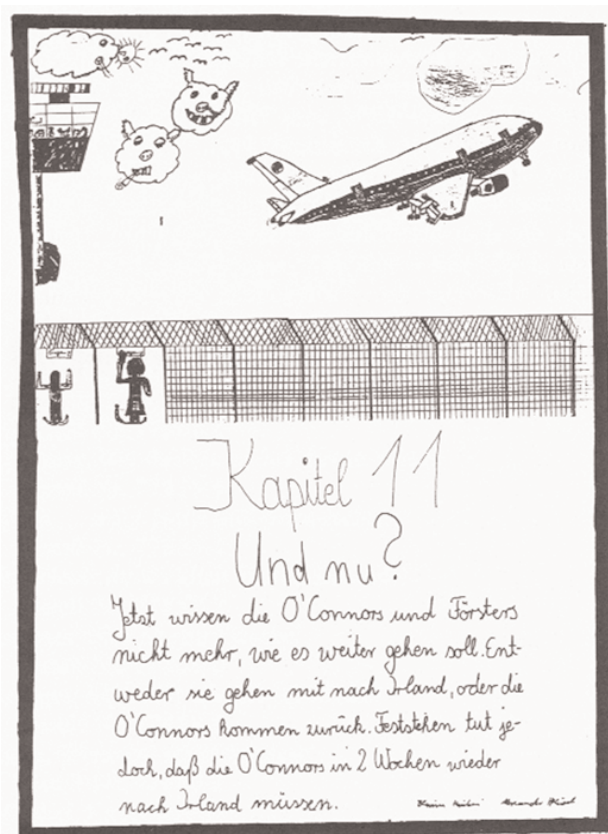 Kapitel 11
Und nu?
Jetzt wissen die O'Connors und Försters
nicht mehr, wie es weiter gehen soll. Ent-
weder sie gehen mit nach Irland, oder die
O'Connors kommen zurück. Feststehen tut je-
doch, daß die O'Connors in 2 Wochen wieder
nach Irland müssen.